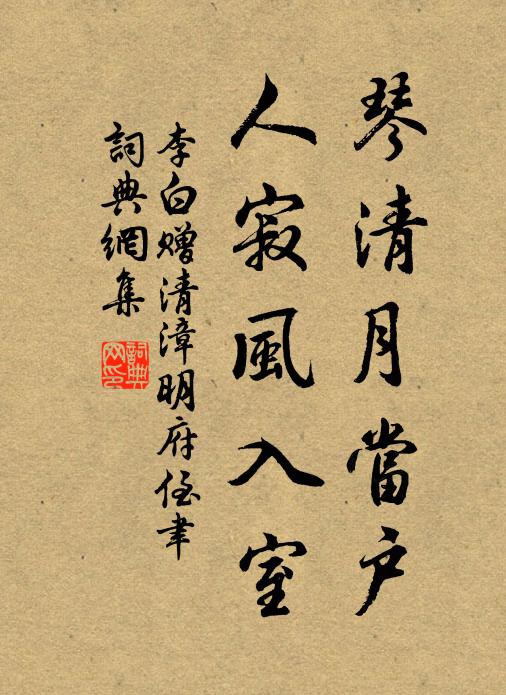 琴清月當户
人寂風入室
李白赠清漳明府侄聿
詞典網集
詞典网印